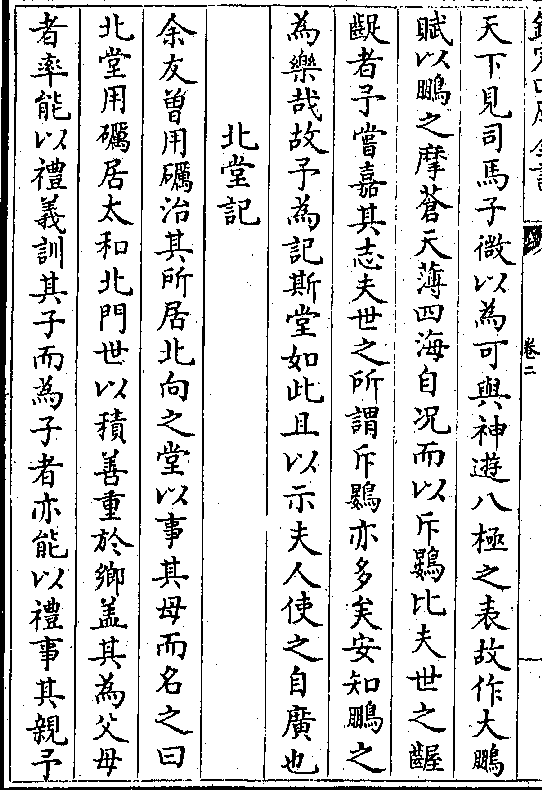 天下見司馬子微以為可與神遊八極之表故作大鵬
賦以鵬之摩蒼天薄四海自况而以斥鷃比夫世之齷
齪者予嘗嘉其志夫世之所謂斥鷃亦多矣安知鵬之
為樂哉故予為記斯堂如此且以示夫人使之自廣也
北堂記
余友曽用礪治其所居北向之堂以事其母而名之曰
北堂用礪居太和北門世以積善重於鄉盖其為父母
者率能以禮義訓其子而為子者亦能以禮事其親予
卷二